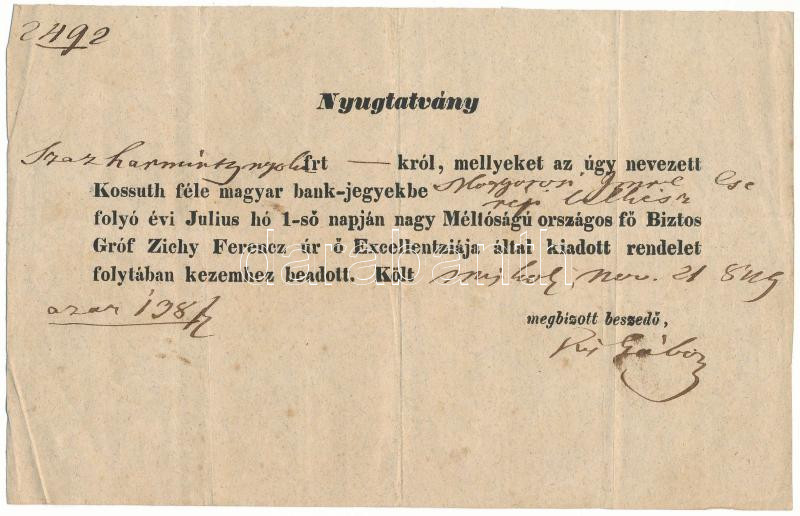 2492
Nyugtatvány
Szaz harmintznyolc frt — król, mellyeket az úgy nevezett
Kossuth féle magyar bank-jegyekbe
folyó évi Julius hó 1-ső napján nagy Méltóságú országos fő Biztos
Gróf Zichy Ferencz úr ő Excellentziája által kiadott rendelet
folytában kezemhez beadott. Költ Miskolc nov. 21 849
azaz 138 f
megbizott beszedő,
Kis Gábor
darabanth